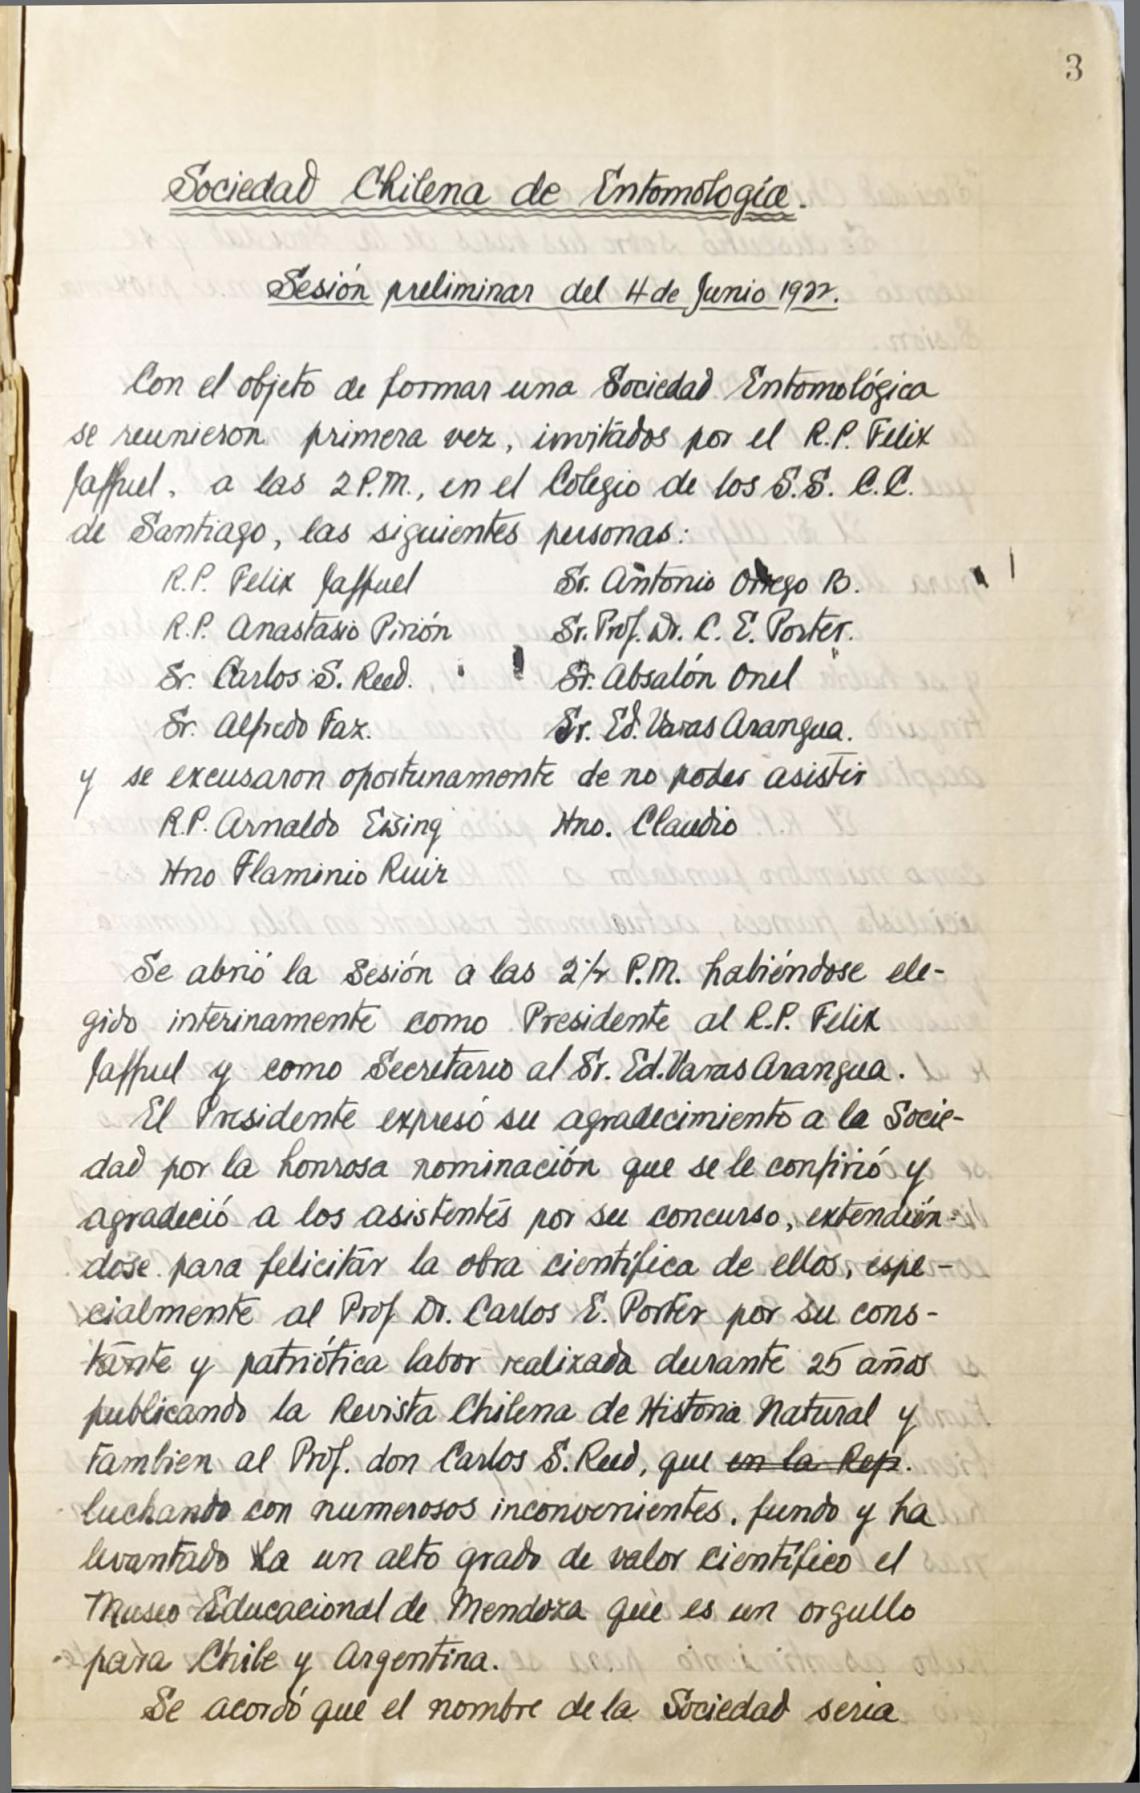 3
Sociedad Chilena de Entomología.
Sesión preliminar del 4 de Junio 1922.
Con el objeto de formar una Sociedad Entomológica
se reunieron primera vez, invitados por el R.P. Felix
Jaffuel, a las 2 P.M., en el Colegio de los S.S. C.C.
de Santiago, las siguientes personas:
R.P. Felix Jaffuel Sr. Antonio Orrego B.
R.P. Anastasio Pirión Sr. Prof. Dr. C. E. Porter.
Sr. Carlos S. Reed. Sr. Absalón Onel
Sr. Alfredo Faz. Sr. Ed. Varas Arangua.
y se excusaron oportunamente de no poder asistir
R.P. Arnaldo Eising Hno. Claudio
Hno Flaminio Ruiz
Se abrió la Sesión a las 2½ P.M. habiéndose ele-
gido interinamente como Presidente al R.P. Felix
Jaffuel y como Secretario al Sr. Ed. Varas Arangua.
El Presidente expresó su agradecimiento a la Socie-
dad por la honrosa nominación que se le confirió y
agradeció a los asistentes por su concurso, extendién-
dose para felicitar la obra científica de ellos, espe-
cialmente al Prof Dr. Carlos E. Porter por su cons-
tante y patriótica labor realizada durante 25 años
publicando la Revista Chilena de Historia Natural y
tambien al Prof. don Carlos S. Reed, que en la Rep.
luchando con numerosos inconvenientes, fundo y ha
levantado a un alto grado de valor científico el
Museo Educacional de Mendoza que es un orgullo
para Chile y Argentina.
Se acordó que el nombre de la Sociedad seria